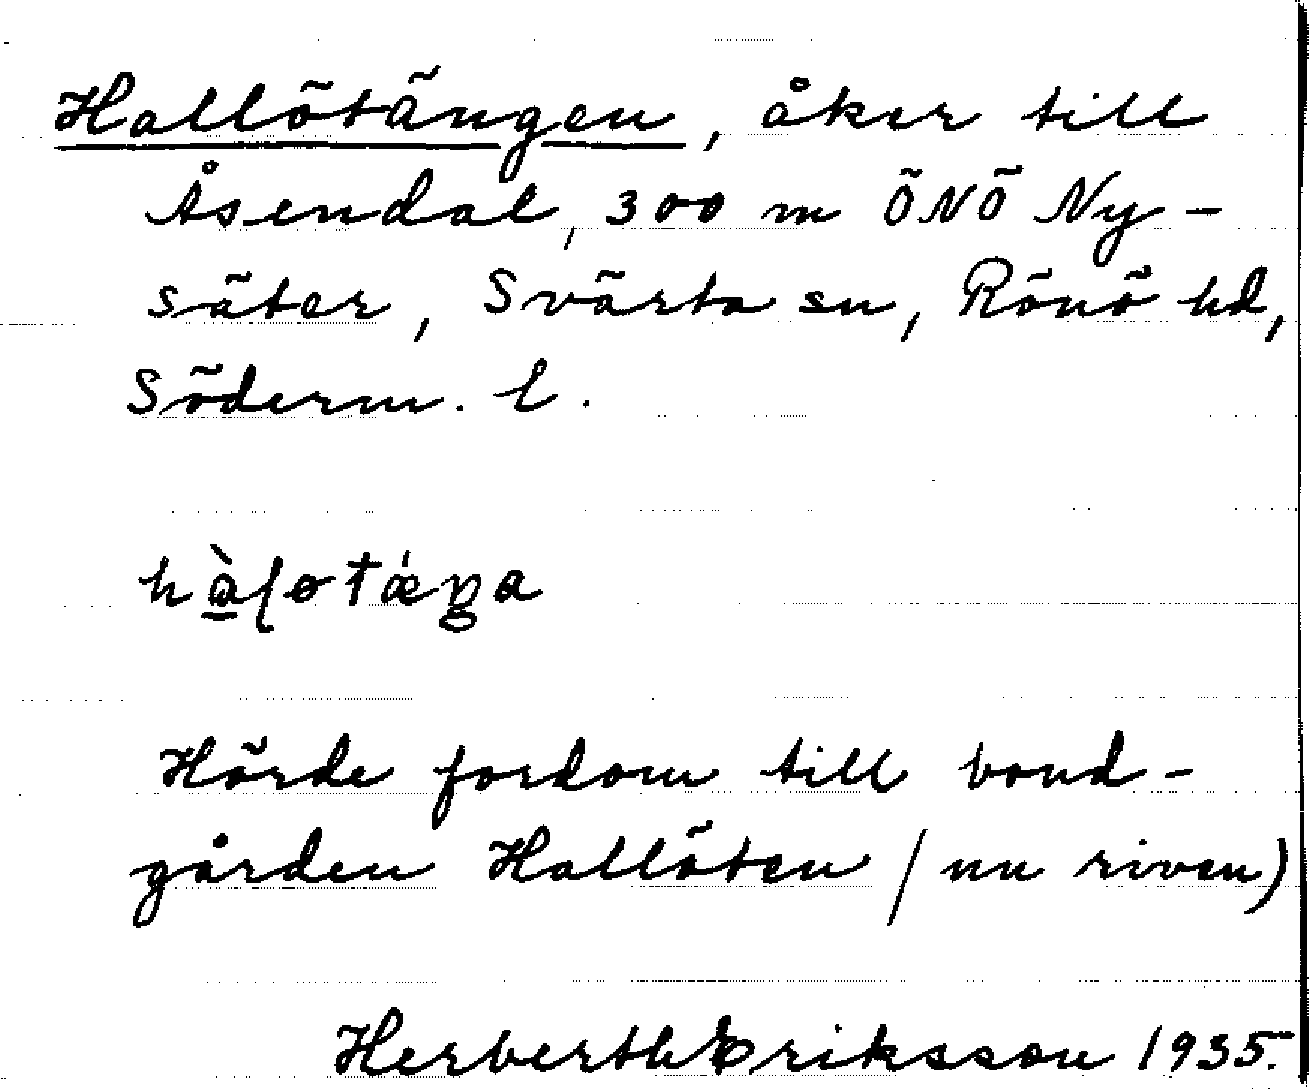 Hallötängen, åker till
Åsendal, 300 m ÖNÖ Ny-
säter, Svärta sn, Rönö hd,
Söderm. l.
Hörde fordom till bond-
gården Hallöten (nu riven)
Herberth Eriksson 1935.